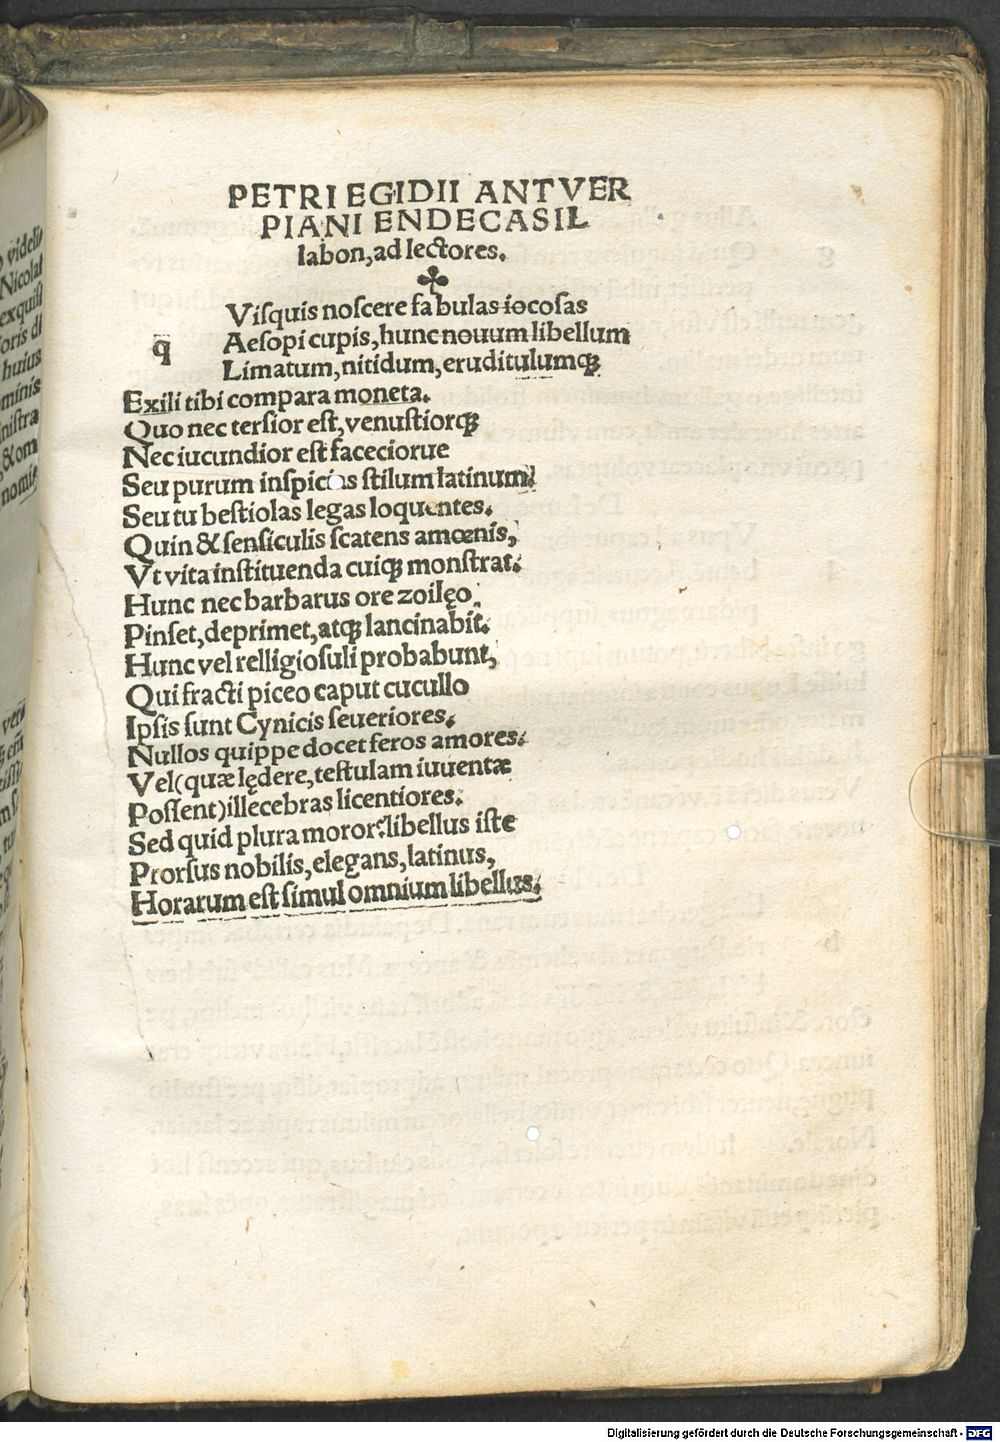 PETRI EGIDII ANTVER
PIANI ENDECASIL
labon, ad lectores.
q Viſquis noſcere fabulas iocoſas
Aeſopi cupis, hunc nouum libellum
Limatum, nitidum, eruditulumqꝫ
Exili tibi compara moneta.
Quo nec terſior eſt, venuſtiorqꝫ
Nec iucundior eſt faceciorue
Seu purum inſpicias ſtilum latinum:
Seu tu beſtiolas legas loquentes.
Quin & ſenſiculis ſcatens amœnis,
Vt vita inſtituenda cuiqꝫ monſtrat.
Hunc nec barbarus ore zoilęo
Pinſet, deprimet, atqꝫ lancinabit.
Hunc vel relligioſuli probabunt,
Qui fracti piceo caput cucullo
Ipſis ſunt Cynicis ſeueriores.
Nullos quippe docet feros amores.
Vel (quæ lędere, teſtulam iuuentæ
Poſſent) illecebras licentiores.
Sed quid plura moror? libellus iſte
Prorſus nobilis, elegans, latinus,
Horarum eſt ſimul omnium libellus.
videli
Nicolai
exquiſi
oris di
huius
ominis
niſtra
& om
nomie
Digitalisierung gefördert durch die Deutsche Forschungsgemeinschaft - DFG